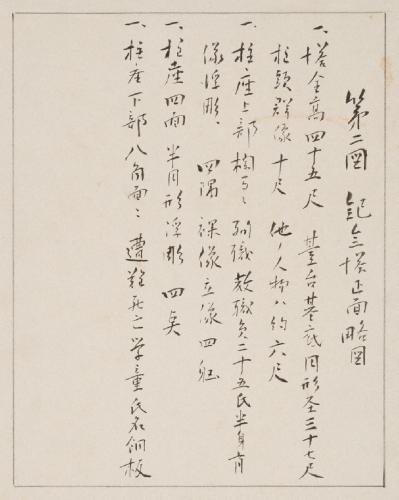 第二図 記念塔正面略図
一、塔全高四十五尺 基台基底円形全三十七尺
柱頭群像十尺 他ノ人物ハ約六尺
一、柱座上部欄間ニ殉職教職員二十五氏半身肖
像浮彫、 四隅 裸像立像四躯
一、柱座四面 半円形浮彫 四点
一、柱座下部八角面ニ 遭難死亡学童氏名銅板